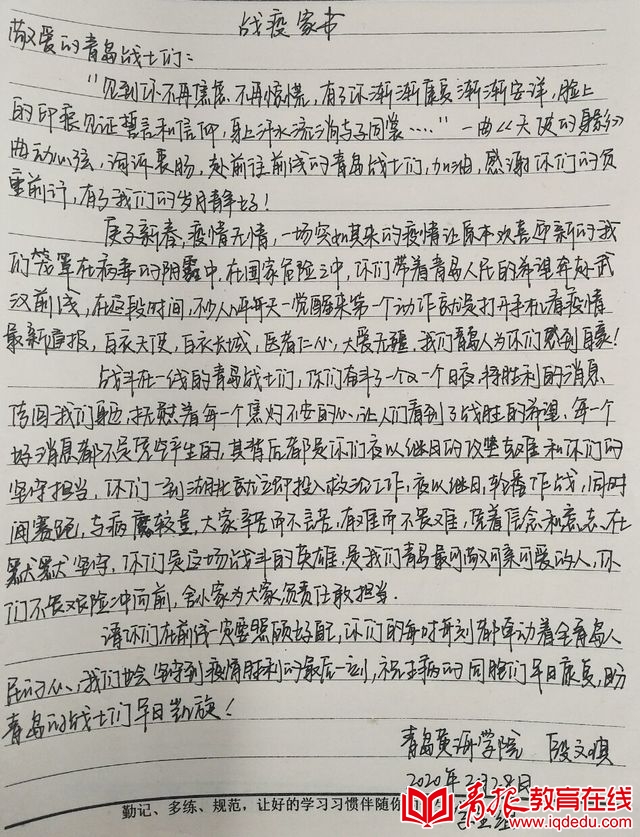 战疫家书
敬爱的青岛战士们：
“见到你不再焦虑,不再惊慌,有了你渐渐康复渐渐安详,脸上
的印痕见证誓言和信仰,身上汗水流淌与子同裳……”一曲《天使的身影》
曲动心弦,海诉衷肠,赴前往前线的青岛战士们,加油,感谢你们的负
重前行,有了我们的岁月静好！
庚子新春,疫情无情,一场突如其来的疫情让原本欢喜迎新的我
们笼罩在病毒的阴霾中,在国家危险之中,你们带着青岛人民的希望奔赴武
汉前线,在这段时间,不少人每天一觉醒来第一个动作就是打开手机看疫情
最新通报,白衣天使,白衣长城,医者仁心,大爱无疆,我们青岛人为你们感到自豪！
战斗在一线的青岛战士们,你们奋斗了一个又一个日夜,将胜利的消息
传回我们身边,抚慰着每一个焦灼不安的心,让人们看到了战胜的希望,每一个
好消息都不是凭空产生的,其背后都是你们夜以继日的攻坚克难和你们的
坚守担当,你们一到湖北就立即投入救治工作,夜以继日,轮番作战,同时
间赛跑,与病魔较量,大家辛苦而不言苦,有难而不畏难,凭着信念和意志,在
默默坚守,你们是这场战斗的英雄,是我们青岛最可敬可亲可爱的人,你
们不畏艰险冲向前,舍小家为大家,负责任敢担当.
请你们在前线一定要照顾好自己,你们的每时每刻都牵动着全青岛人
民的心,我们也会坚守到疫情胜利的最后一刻,祝生病的同胞们早日康复,盼
青岛的战士们早日凯旋！
青岛黄海学院 段文琪
2020年2月28日
勤记、多练、规范,让好的学习习惯伴随你
青报教育在线
www.iqdedu.com